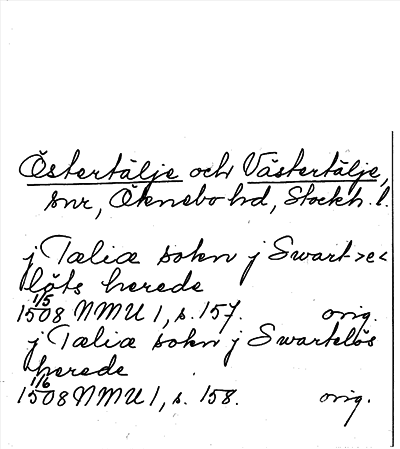 Östertälje och Västertälje,
snr, Öknebo hd, Stockh. l.
j Tæliæ sokn j Swart>e<
löts herede
1/5
1508 NMU 1, s. 157. orig.
j Tælia sokn j Swartelös
herede
1/6
1508 NMU 1, s. 158. orig.